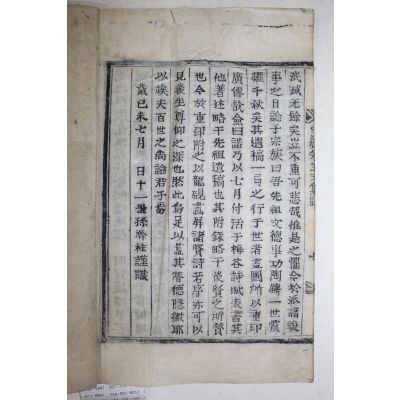 泯滅无餘矣豈不重可悲哉惟是之懼 於派諸
事之日諭于宗族曰吾先祖文德事功陶鑄一世震
耀千秋矣其遺稿一弓之行于世者盖圖所以重印
廣傳哉僉曰諾乃以七月付活于梅谷詩賦表 其
他著述略干先祖遺稿也其附錄略干後賢之所贊
也今於重印附之以龍硯畫屛諸賢詩若序亦可以
見後生尊仰之深也然此焉足以盡其潛德隱徽耶
以竢夫百世之尚論君子焉
歲己未七月 日十一世孫 柱謹識